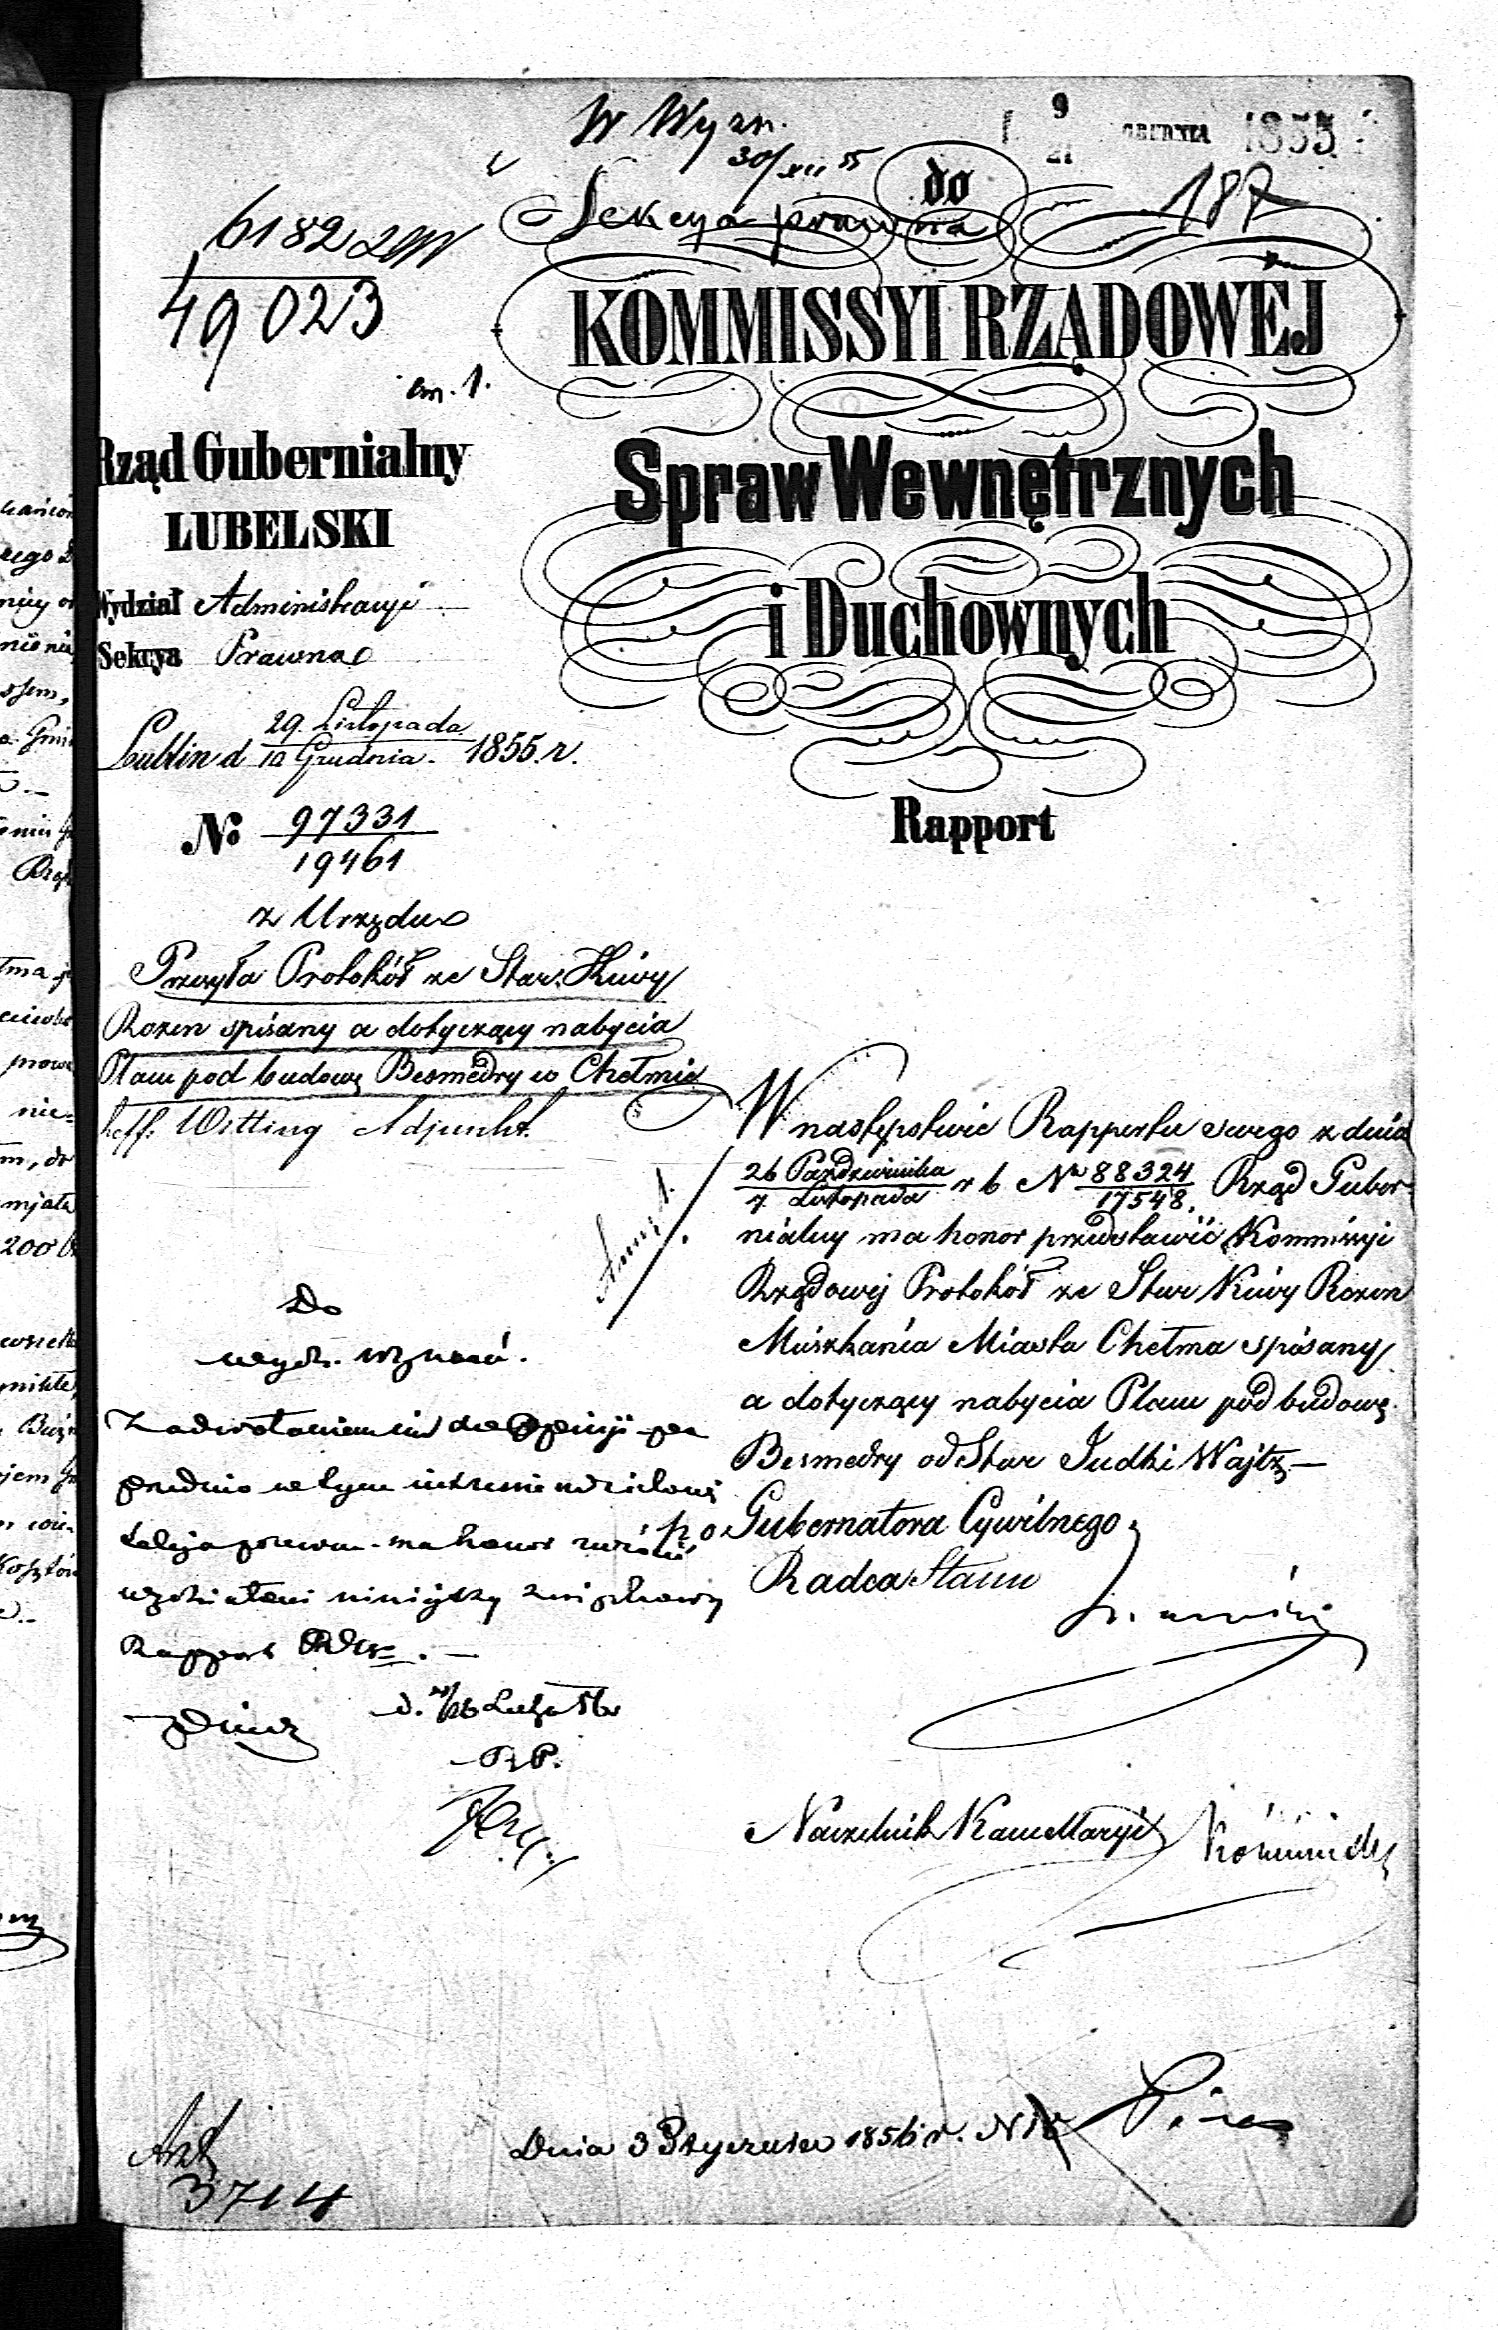 W Wyzn.
30/XII 55
9
21
GRUDNIA 1855
187
Sekcya prawna
do
KOMMISSYI RZĄDOWÉJ
Spraw Wewnętrznych
i Duchownych
Rapport
6182
49023
an. 1.
Rząd Gubernialny
LUBELSKI
Wydział Administracyi
Sekcya Prawna
Lublin d 29 Listopada / 10 Grudnia 1855. r.
No 97331 / 19461
z Urzędu
Przesyła Protokół ze Star.
Rozen spisany a dotyczący nabycia
Placu pod budowę Besmedry w Chełmie
Reff: Witting Adjunkt.
W następstwie Rapportu swego z dnia
26 Października / 7 Listopada r b No 88324 / 17548. Rząd Guber-
nialny ma honor przedstawić Kommissyi
Rządowej Protokół ze Star Kiwy Rozen
Mieszkańca Miasta Chełma spisany
a dotyczący nabycia Placu pod budowę
Besmedry od Star Judki Wajtz
p o Gubernatora Cywilnego
Radca Stanu
Naczelnik Kancellaryi
Do
wydz. wyznań.
Z odwołaniem się do Opinji po
przednio w tym interessie udzielonej
Sekcja prawn. ma honor zwrócić
wydziałowi niniejszy
Rapport
Dnia 3 Stycznia 1856 r.
3714